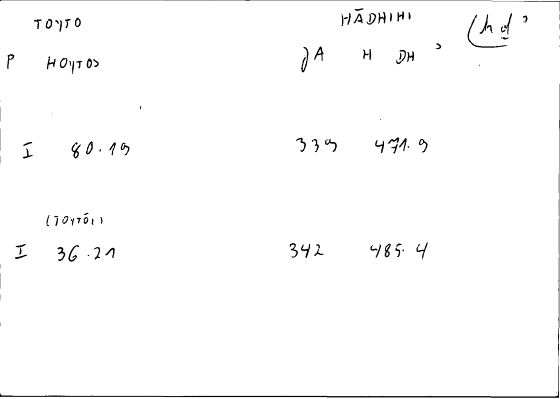 TOYTO HĀDHIHI (hd̲ ʾ
P HOYTOS GA H DH ʾ
I 80.19 339 471.9
(TOYTŌI)
I 36.21 342 485.4